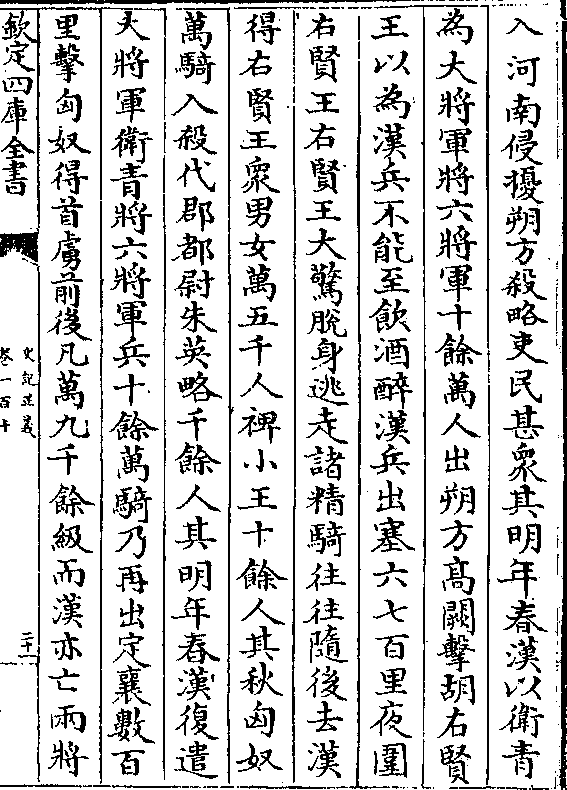 入河南侵擾朔方殺略吏民甚衆其明年春漢以衛青
為大將軍將六將軍十餘萬人出朔方髙闕擊胡右賢
王以為漢兵不能至飲酒醉漢兵出塞六七百里夜圍
右賢王右賢王大驚脫身逃走諸精騎往往隨後去漢
得右賢王衆男女萬五千人裨小王十餘人其秋匈奴
萬騎入殺代郡都尉朱英略千餘人其明年春漢復遣
大將軍衛青將六將軍兵十餘萬騎乃再出定襄數百
里擊匈奴得首虜前後凡萬九千餘級而漢亦亡兩將
欽定四庫全書
史記正義
卷一百十
三十一